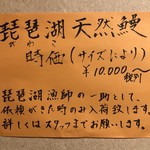 琵琶湖 天然鰻
びわこ
時価(サイズにより)
¥10,000〜
税別
琵琶湖漁師の一助として、
依頼がきた時のみ入荷致します。
詳しくはスタッフまでお願いします。